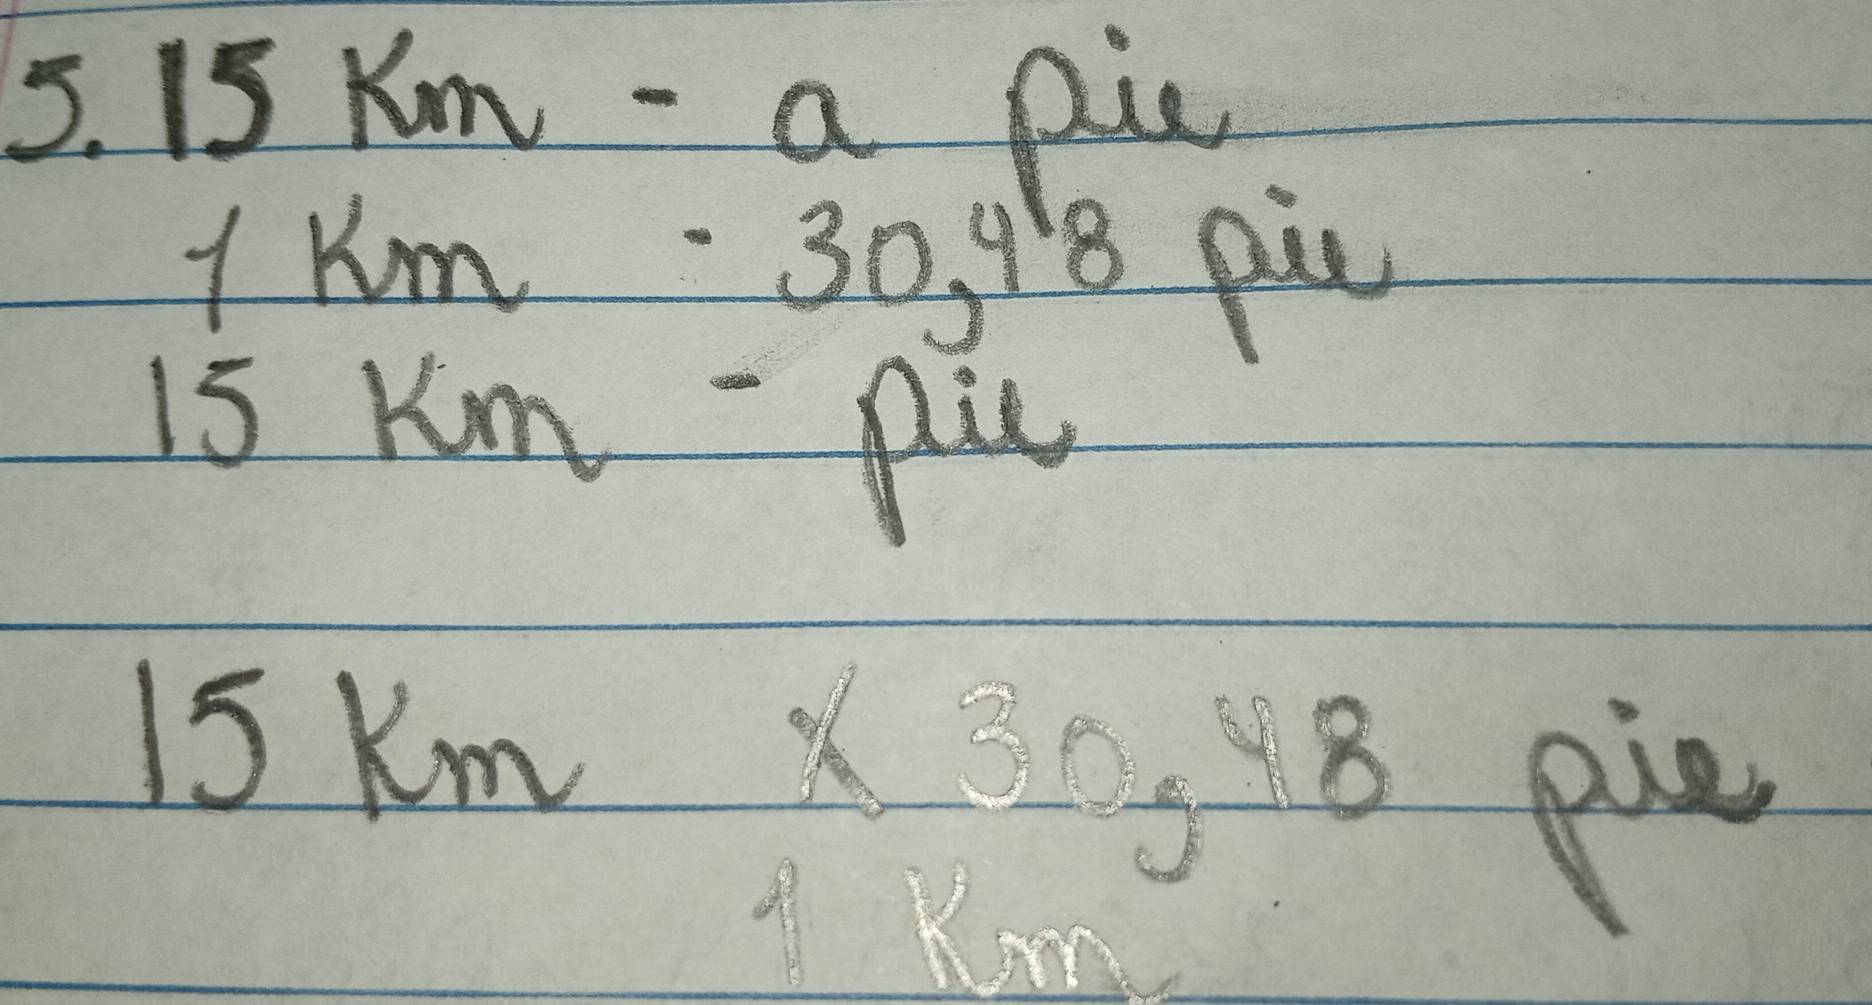 5. 15 Km - a pie
1 Km - 30,48 pie
15 Km - pie
15 Km x 30,48 pie
1 Km